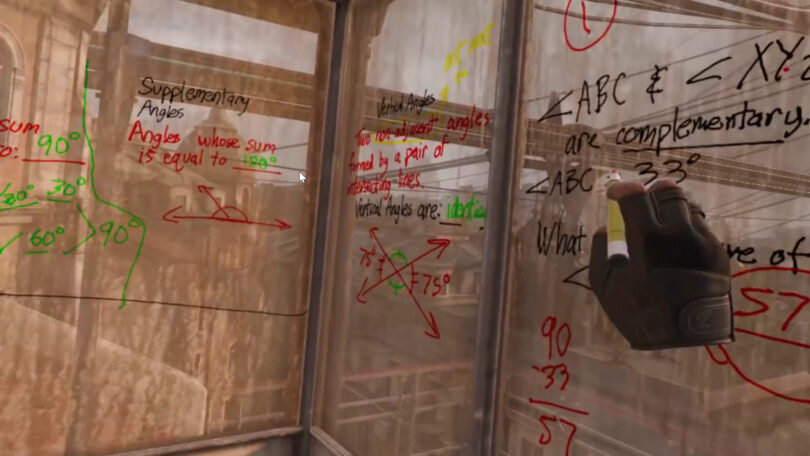 sum
90°
30°
60° 90°
Supplementary
Angles
Angles whose sum
is equal to 180°
not next
to
Vertical Angles
Two non-adjacent angles
formed by a pair of
intersecting lines.
Vertical Angles are:
75°
75°
1
∠ABC & ∠XYZ
are complementary.
∠ABC 33°
What of
57
90
-33
57